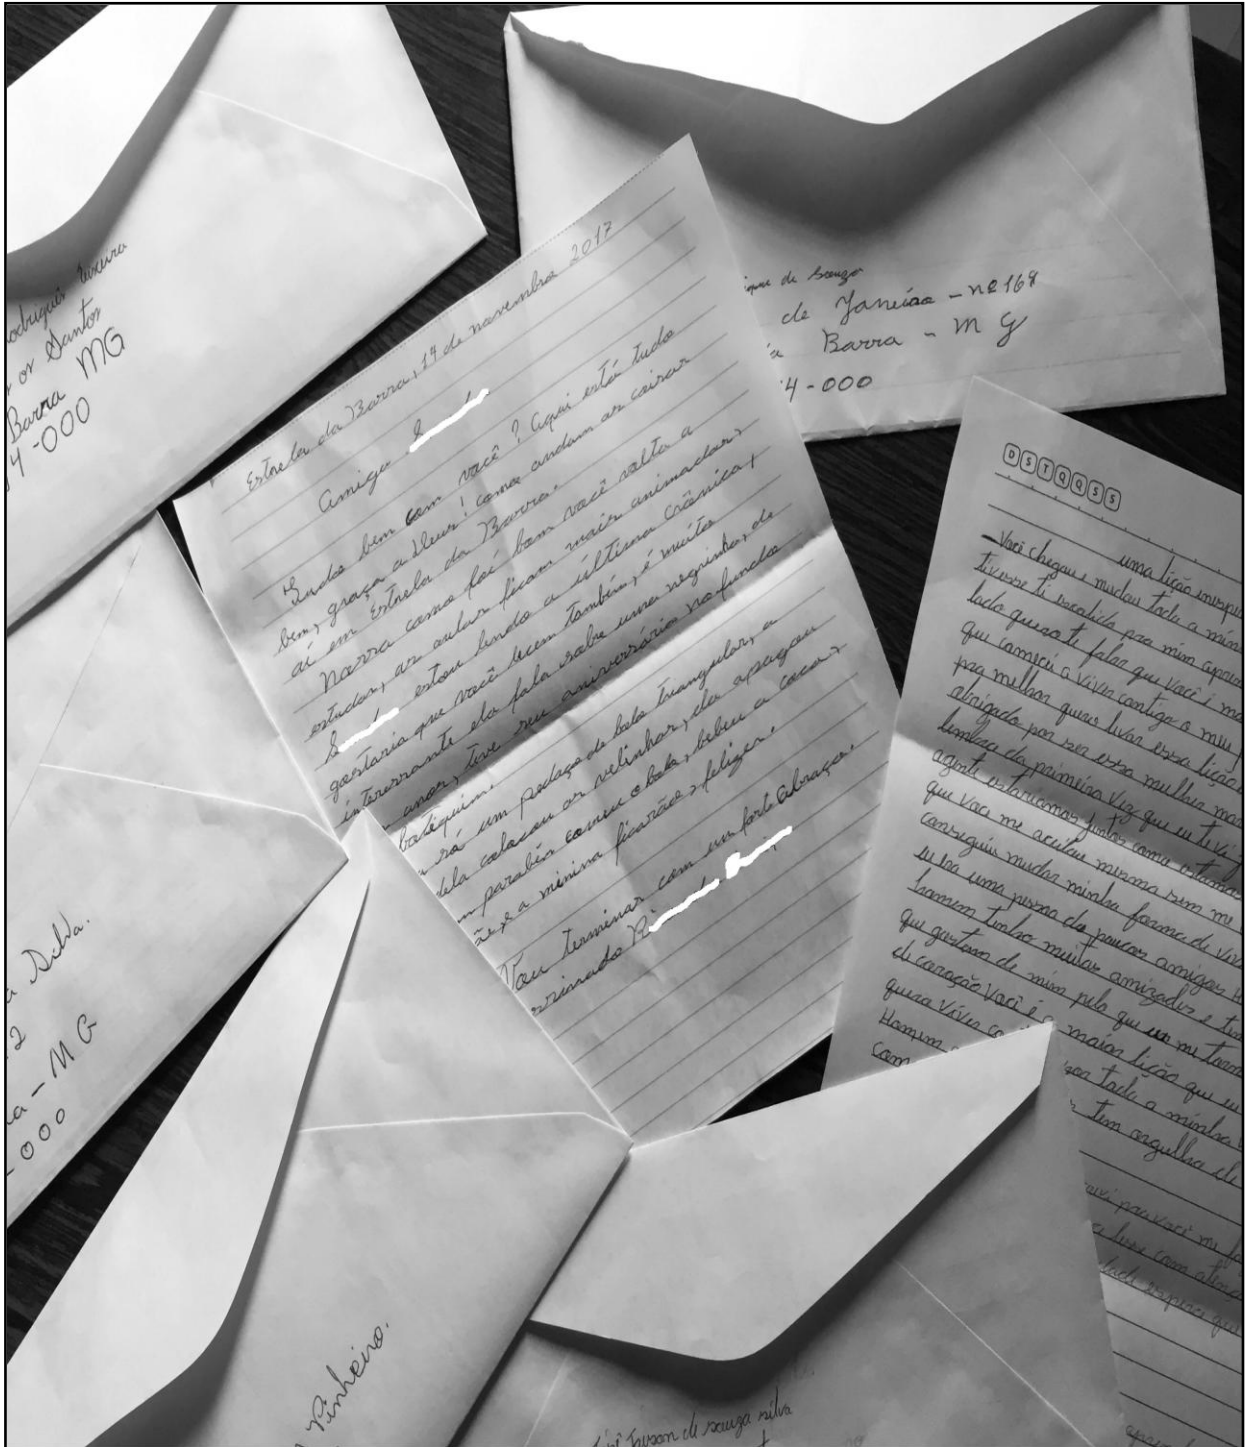 odrigues Teixeira
or Santos
Barra MG
4-000
de Souza
de Janeiro - nº 168
Barra - MG
4-000
Estrela da Barra, 14 de novembro 2017
Amigo
Tudo bem com você? Aqui está tudo
bem, graça a Deus! como andam as coisas
aí em Estrela da Barra.
Nossa como foi bom você volta a
estudar, as aulas ficam mais animadas,
estou lendo a última Crônica,
gostaria que você lesse também, é muito
interessante ela fala sobre uma negrinha, de
anos, teve seu aniversário no fundo
botéquim.
só um pedaço de bolo triangular, a
dela colocou as velinhas, ela apagou
parabéns comeu o bolo, bebeu a coca
e a menina ficarão felizes.
Vou terminar com um forte abraço,
DSTQQSS
uma lição
Você chegou e mudou toda a minha
tivesse ti escolhido pra mim
lado quero ti falar que você é
que comecei a viver contigo o meu
pra melhor quero levar essa lição
obrigado por ser essa mulher
lembro da primeira vez que eu te vi
agente estariamos juntos como estamos
que você me aceitou mesmo sem me
conseguiu mudar minha forma de viver
eu era uma pessoa de poucos amigos
homem tenho muitas amizades e
que gostam de mim pelo que eu me
de coração você é a maior lição que eu
quero viver toda a minha
Homem tem orgulho de
com
Silva.
2
a - MG
-000
Pinheiro.
de souza silva